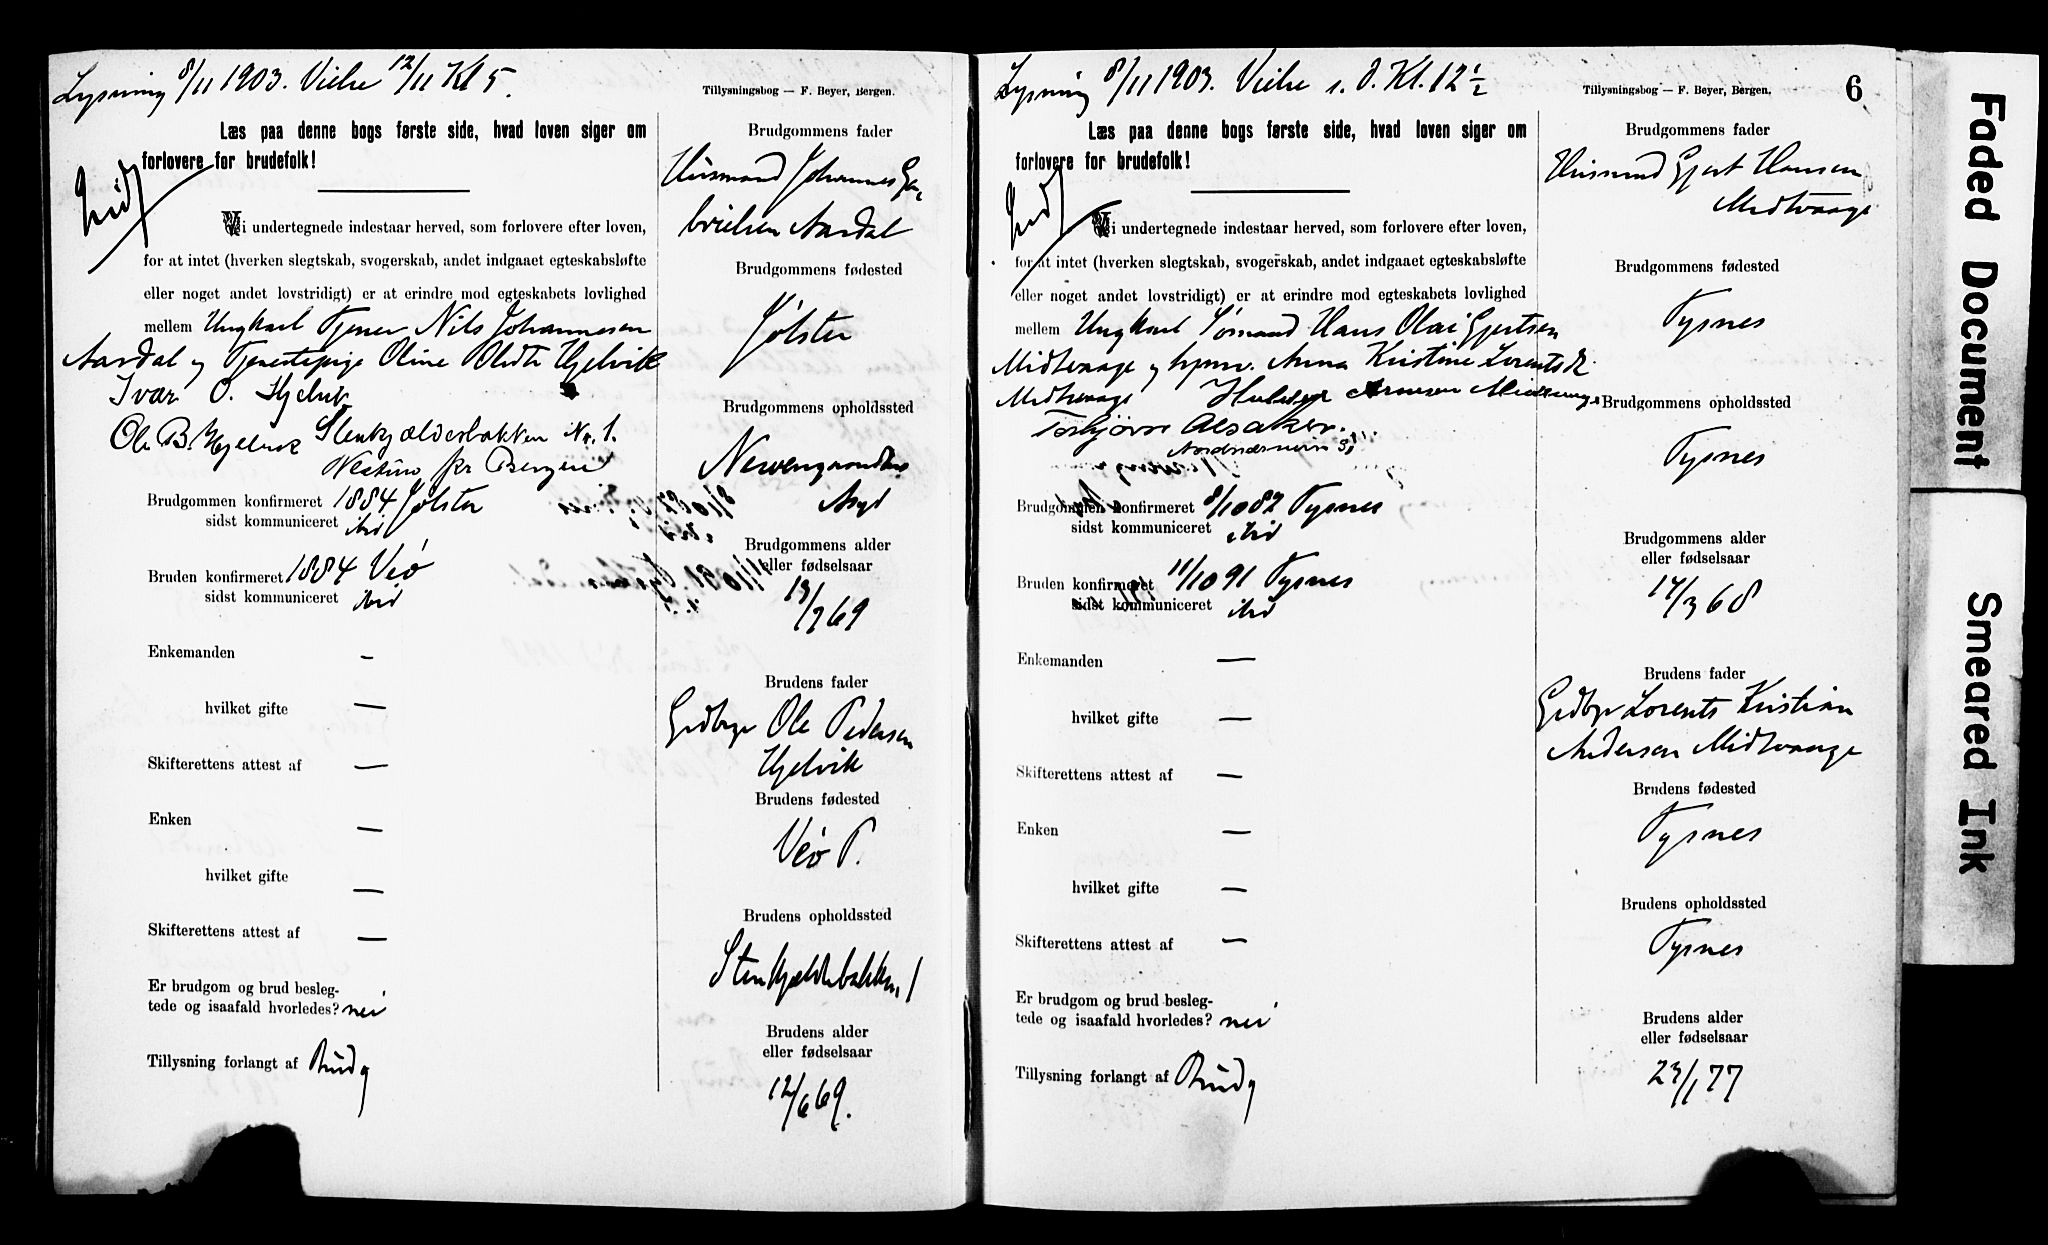 Lysning 8/11 1903. Vielse 12/11 Kl 5.
Tillysningsbog — F. Beyer, Bergen.
Læs paa denne bogs første side, hvad loven siger om
forlovere for brudefolk!
Vi undertegnede indestaar herved, som forlovere efter loven,
for at intet (hverken slegtskab, svogerskab, andet indgaaet egteskabsløfte
eller noget andet lovstridigt) er at erindre mod egteskabets lovlighed
mellem Ungkarl Tjener Nils Johannesen
Aardal og Tjenestepige Oline Olsdtr Hjelvik
Ivar O. Hjelvik
Ole B. Hjelvik Stenkjælderbakken No. 1.
pr Bergen
Brudgommen konfirmeret 1884 Jølster
sidst kommuniceret ibid
Bruden konfirmeret 1884 Veø
sidst kommuniceret ibid
Enkemanden —
hvilket gifte —
Skifterettens attest af —
Enken —
hvilket gifte —
Skifterettens attest af —
Er brudgom og brud besleg-
tede og isaafald hvorledes? nei
Tillysning forlangt af Brudg
Brudgommens fader
Husmand Johannes Ga-
brielsen Aardal
Brudgommens fødested
Jølster
Brudgommens opholdssted
Asyl
Brudgommens alder
eller fødselsaar
13/7 69
Brudens fader
Grdbrgr Ole Pedersen
Hjelvik
Brudens fødested
Veø P.
Brudens opholdssted
Stenkjelderbakken 1
Brudens alder
eller fødselsaar
12/6 69.
Lysning 8/11 1903. Vielse s. D. Kl. 12 1/2
Tillysningsbog — F. Beyer, Bergen.
6
Læs paa denne bogs første side, hvad loven siger om
forlovere for brudefolk!
Vi undertegnede indestaar herved, som forlovere efter loven,
for at intet (hverken slegtskab, svogerskab, andet indgaaet egteskabsløfte
eller noget andet lovstridigt) er at erindre mod egteskabets lovlighed
mellem Ungkarl Sømand Hans Olai Gjertsen
Midtvaage og hjmv. Anna Kristine Lorentsdtr
Midtvaage
Torbjørn Alsaker.
Brudgommen konfirmeret 8/10 82 Tysnes
sidst kommuniceret ibid
Bruden konfirmeret 11/10 91 Tysnes
sidst kommuniceret ibid
Enkemanden —
hvilket gifte —
Skifterettens attest af —
Enken —
hvilket gifte —
Skifterettens attest af —
Er brudgom og brud besleg-
tede og isaafald hvorledes? nei
Tillysning forlangt af Brudg
Brudgommens fader
Husmand Gjert Hansen
Midtvaage
Brudgommens fødested
Tysnes
Brudgommens opholdssted
Tysnes
Brudgommens alder
eller fødselsaar
17/3 68
Brudens fader
Grdbgr Lorents Kristian
Andersen Midtvaage
Brudens fødested
Tysnes
Brudens opholdssted
Tysnes
Brudens alder
eller fødselsaar
23/1 77
Faded Document
Smeared Ink